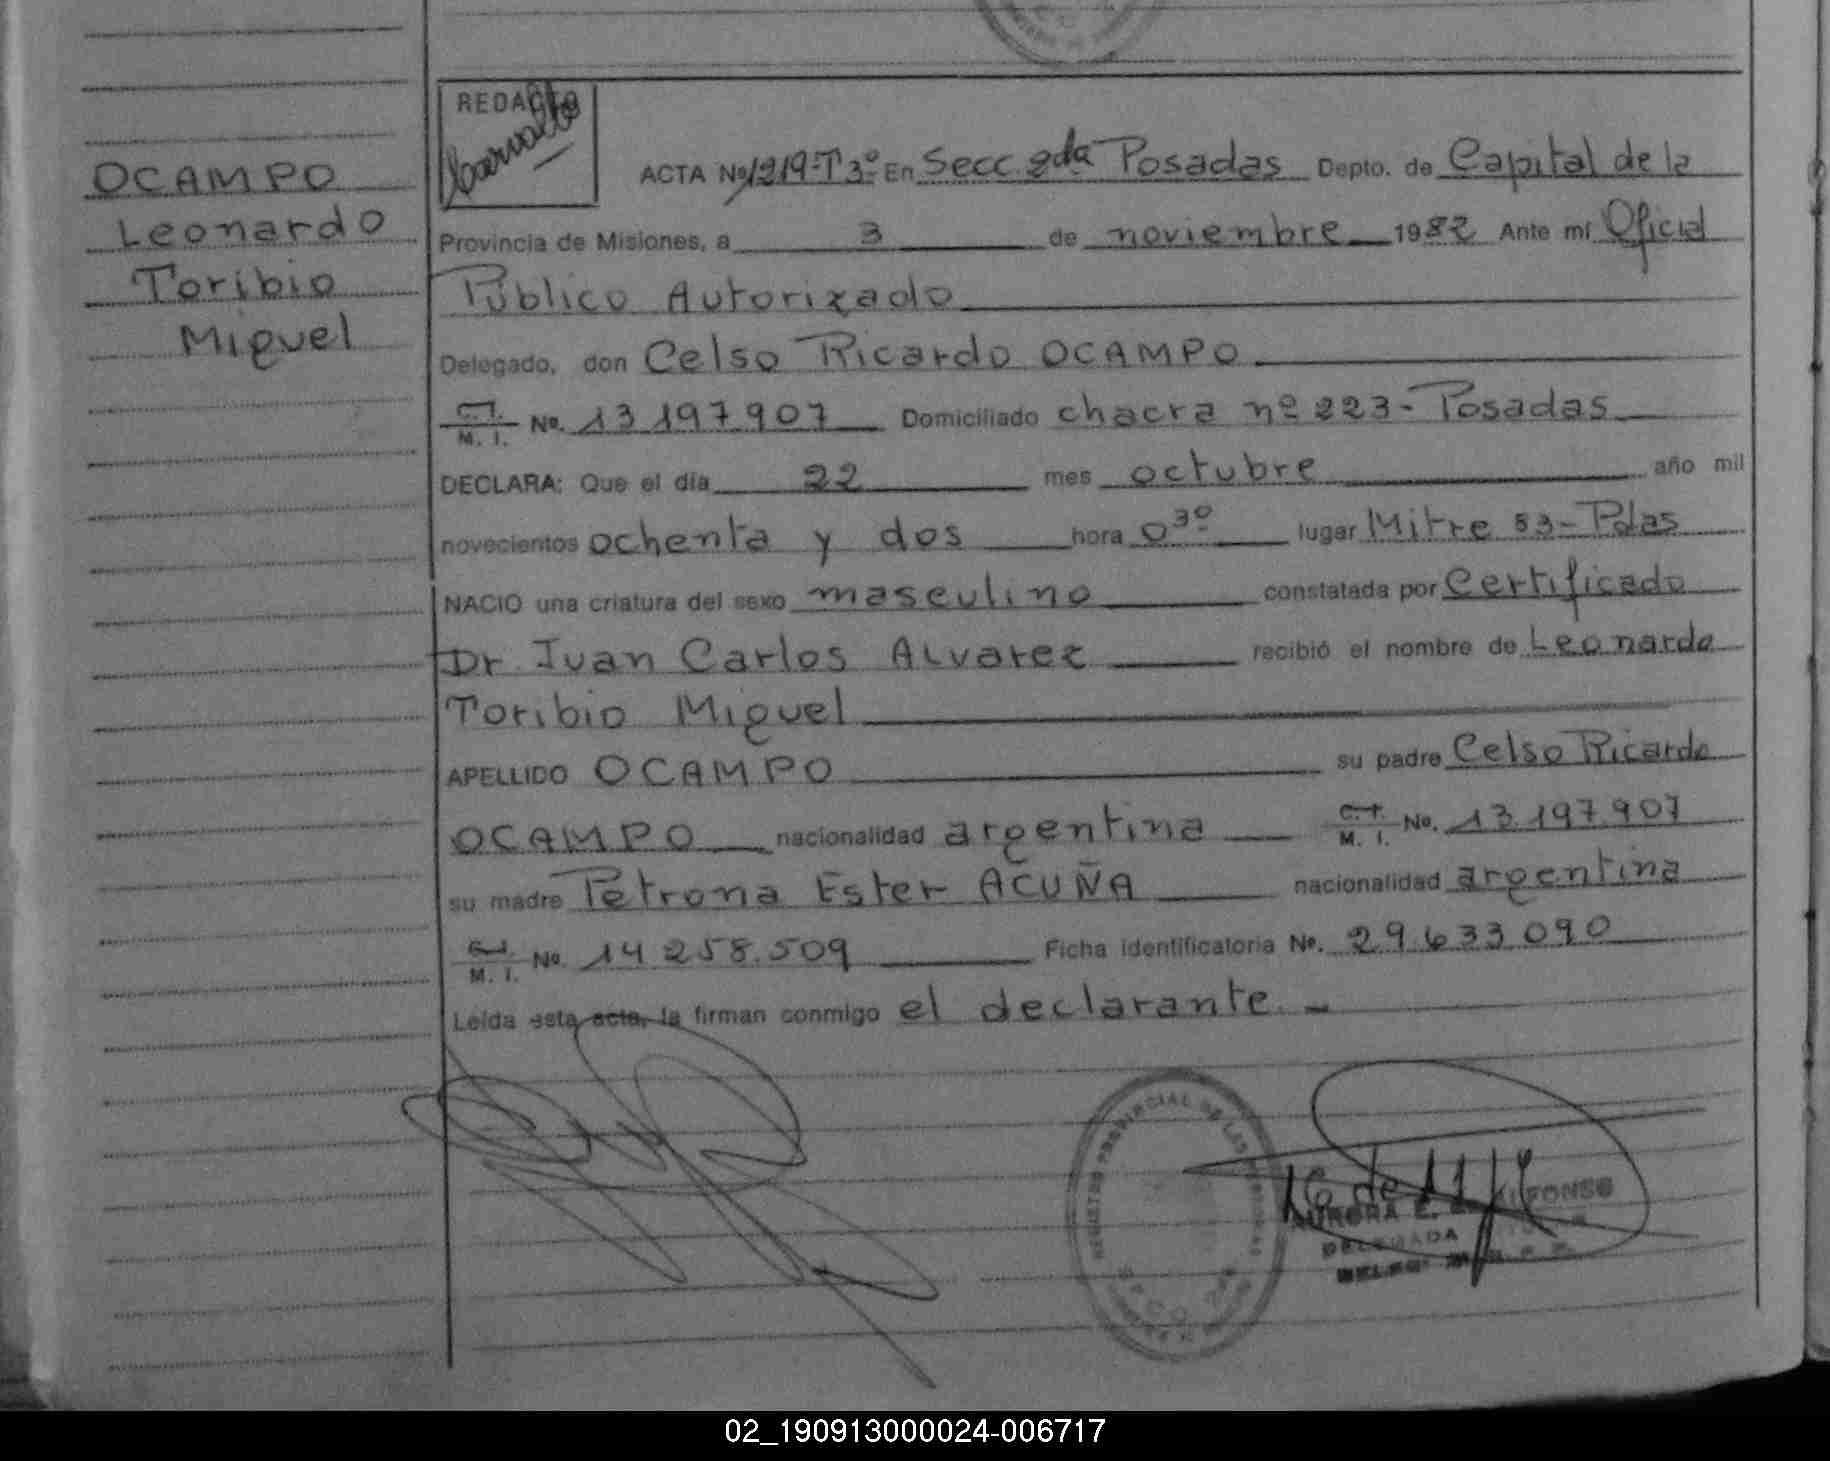 OCAMPO
Leonardo
Toribio
Miguel
REDACTO
ACTA No 1219-T3º En Secc. 2da Posadas Depto. de Capital de la
Provincia de Misiones, a 3 de noviembre 1982 Ante mí Oficial
Público Autorizado
Delegado, don Celso Ricardo OCAMPO
C.I. M. I. No. 13 197 907 Domiciliado chacra nº 223- Posadas
DECLARA: Que el día 22 mes octubre año mil
novecientos ochenta y dos hora 0 30 lugar Mitre 53- Pdas
NACIO una criatura del sexo masculino constatada por Certificado
Dr. Juan Carlos Alvarez recibió el nombre de Leonardo
Toribio Miguel
APELLIDO OCAMPO su padre Celso Ricardo
OCAMPO nacionalidad argentina C.I. M. I. No. 13.197.907
su madre Petrona Ester ACUÑA nacionalidad argentina
C.I. M. I. No. 14 258.509 Ficha identificatoria No. 29.633.090
Leída esta acta, la firman conmigo el declarante.-
REGISTRO PROVINCIAL DE LAS PERSONAS
AURORA E. ALFONSO
DELEGADA
02_190913000024-006717